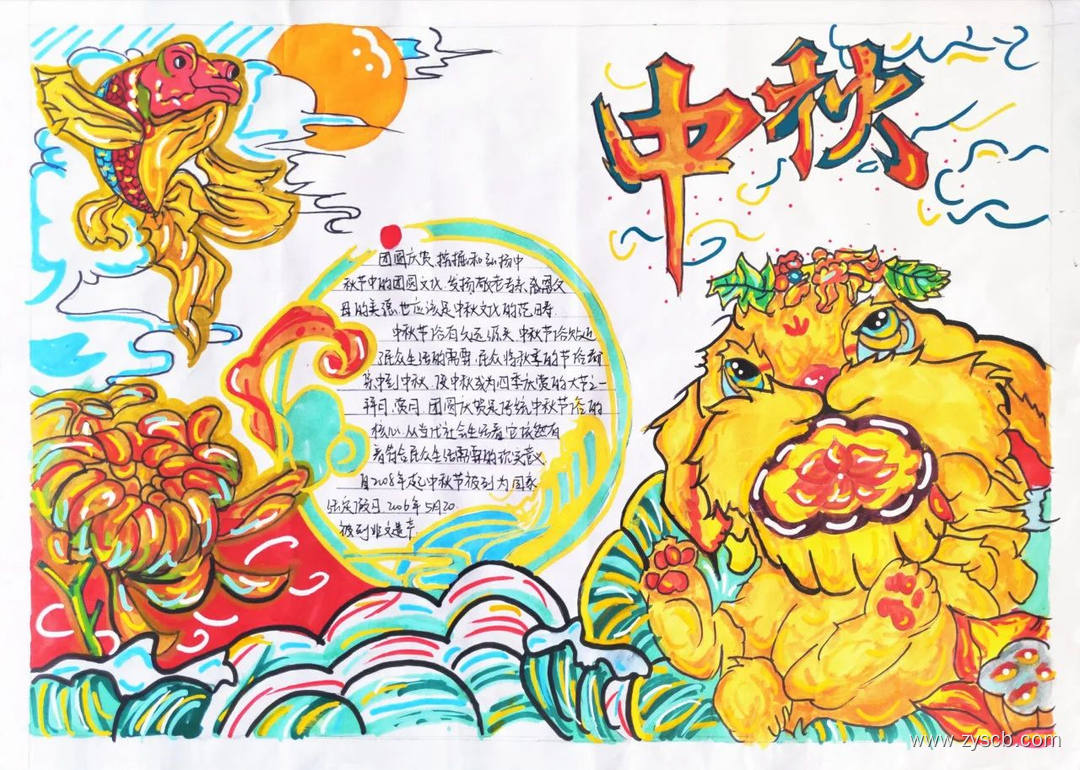 中秋
团圆庆贺,接推和弘扬中
秋节中的团圆文化,发扬敬老孝亲,感恩父
母的美德,也应该是中秋文化的范日寿
中秋节俗有久远源头,中秋节俗贴近
了民众生活的需要,民众将秋季的节俗都
集中到中秋,使中秋成为四季庆贺的大节之一
拜月、赏月、团圆庆贺是传统中秋节俗的
核心,从当代社会生活看,它依然有
着符合民众生活需要的积极意义
自2008年起中秋节被列为国家
法定假日,2006年5月20
被列非文遗产
www.zyscb.com